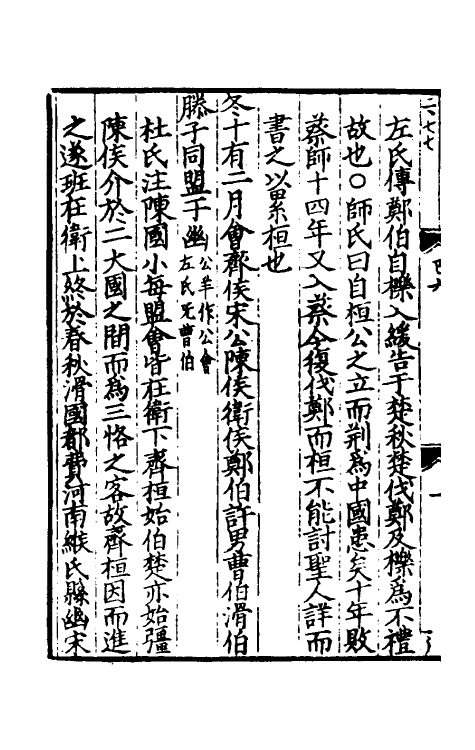 左氏傳鄭伯自櫟入緩告于楚秋楚伐鄭及櫟爲不禮
故也○師氏曰自桓公之立而荆爲中國患矣十年敗
蔡師十四年又入蔡今復伐鄭而桓不能討聖人詳而
書之以累桓也
冬十有二月會齊侯宋公陳侯衛侯鄭伯許男曹伯滑伯
滕子同盟于幽公羊作公會左氏旡曹伯
杜氏注陳國小每盟會皆在衛下齊桓始伯楚亦始彊
陳侯介於二大國之間而爲三恪之客故齊桓因而進
之遂班在衛上終於春秋滑國都費河南緱氏縣幽宋